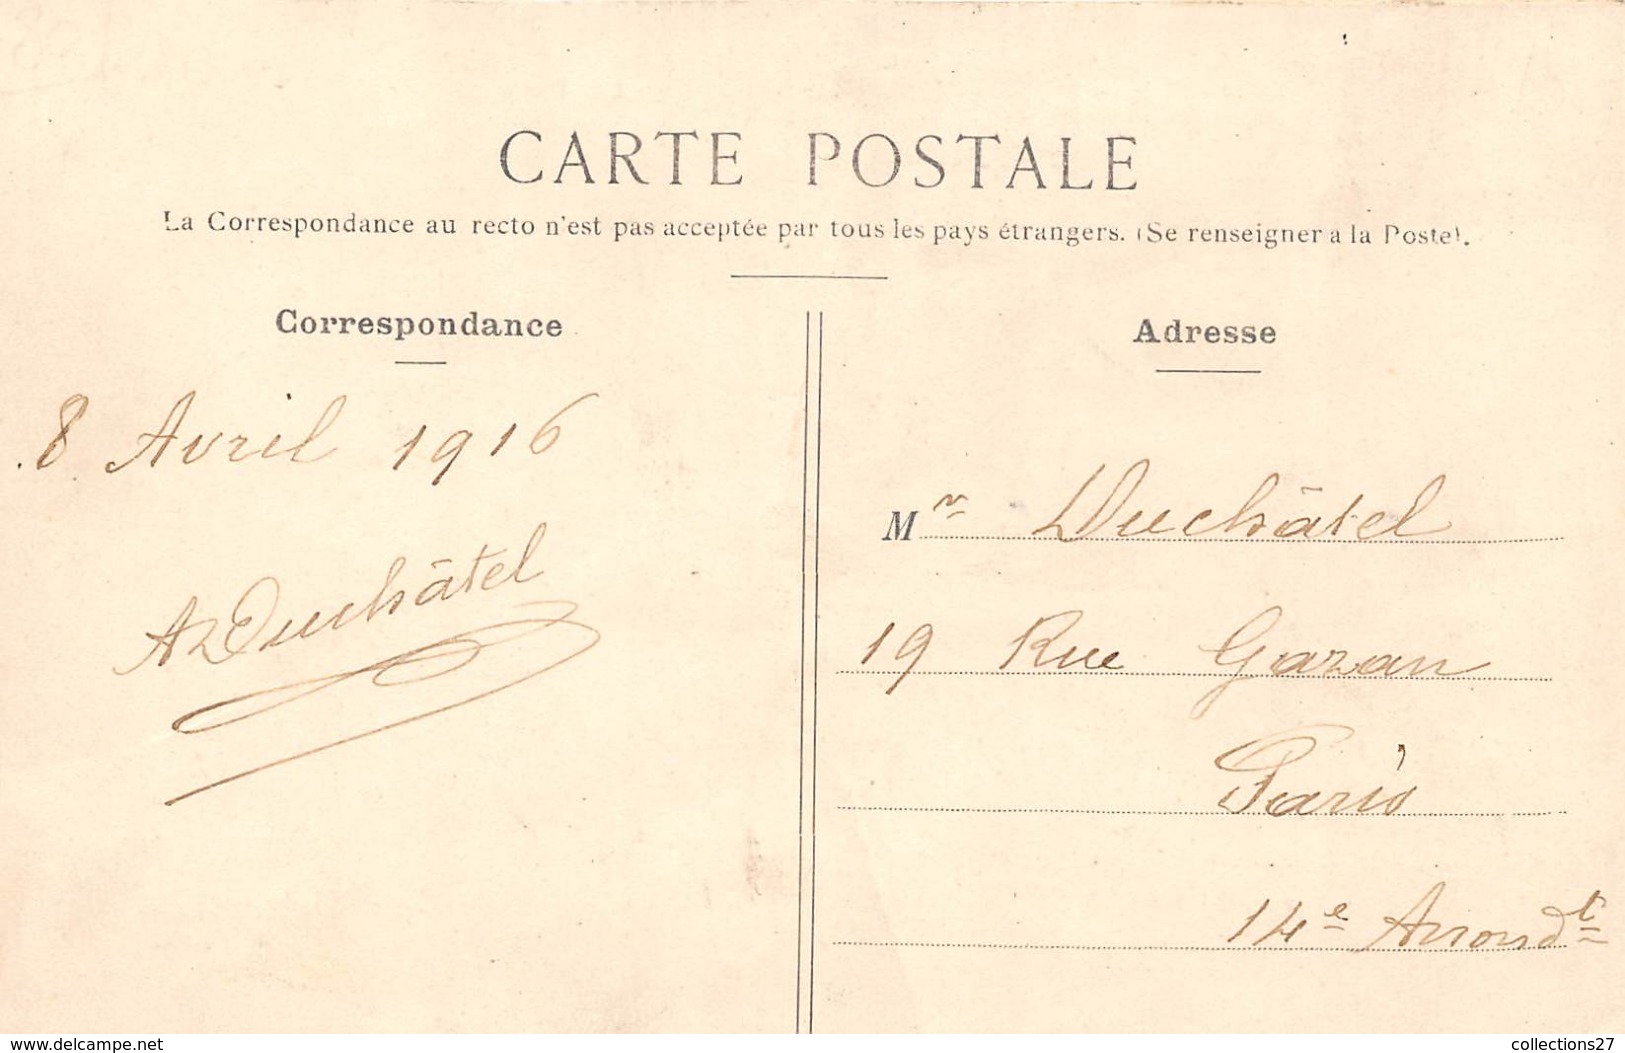 CARTE POSTALE
La Correspondance au recto n'est pas acceptée par tous les pays étrangers. (Se renseigner a la Poste).
Correspondance
8 Avril 1916
A Duchâtel
Adresse
Mr Duchâtel
19 Rue Gazan
Paris
14e Arrondt
www.delcampe.net
collections27